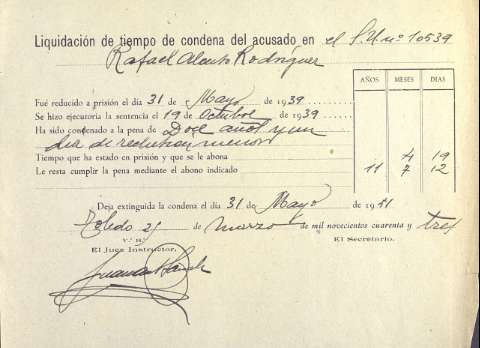 Liquidación de tiempo de condena del acusado en el S.U. nº 10539
Rafael Rodríguez
AÑOS MESES DIAS
Fué reducido a prisión el día 31 de Mayo de 1939
Se hizo ejecutoria la sentencia el 19 de Octubre de 1939
Ha sido condenado a la pena de Doce años y un
día de reclusión menor
Tiempo que ha estado en prisión y que se le abona 4 19
Le resta cumplir la pena mediante el abono indicado 11 7 12
Deja extinguida la condena el día 31 de Mayo de 1951
Toledo 21 de marzo de mil novecientos cuarenta y tres
V.º B.º
El Juez Instructor, El Secretario,